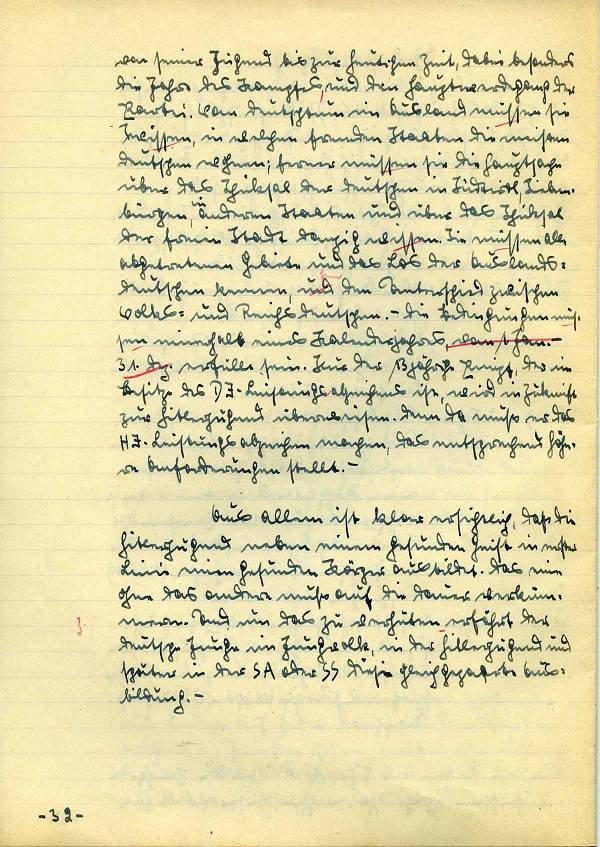 von seiner Jugend bis zur heutigen Zeit, dabei besonders
die Jahre des Kampfes, und den Hauptwerdegang der
Partei. Vom Deutschtum im Ausland müssen sie
wissen, in welchen fremden Staaten die meisten
Deutschen wohnen; ferner müssen sie die Hauptsache
über das Schiksal der Deutschen in Südtirol, Sieben-
bürgen, in anderen Staaten und über das Schiksal
der freien Stadt Danzig wissen. Sie müssen alle
abgetretenen Gebiete und das Los der Auslands=
deutschen kennen, und den Unterschied zwischen
Volks= und Reichsdeutschen. – Die Bedingungen müs-
sen innerhalb eines Kalenderjahres, vom 1. Jan. –
31. Dez. erfüllt sein. Nur der 13 jährige Pimpf, der im
Besitze des DJ-Leistungsabzeichens ist, wird in Zukunft
zur Hitlerjugend überwiesen. Denn da muss er das
HJ-Leistungsabzeichen machen, das entsprechend höhe-
re Anforderungen stellt. –
Aus allem ist klar ersichtlich, dass die
Hitlerjugend neben einem gesunden Geist in erster
Linie einen gesunden Körper ausbildet. Das eine
ohne das andere muss auf die Dauer verküm-
mern. Und um das zu verhüten erfährt der
deutsche Junge im Jungvolk, in der Hitlerjugend und
später in der SA oder SS diese gleichgepaarte Aus=
bildung. –
3.
-32-